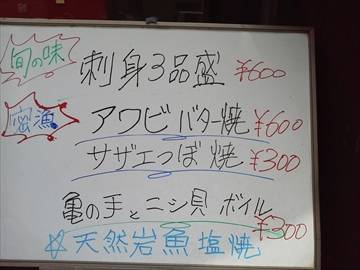 旬の味
刺身3品盛 ¥600
密漁
アワビバター焼 ¥600
サザエつぼ焼 ¥300
亀の手とニシ貝 ボイル ¥300
☆天然岩魚塩焼